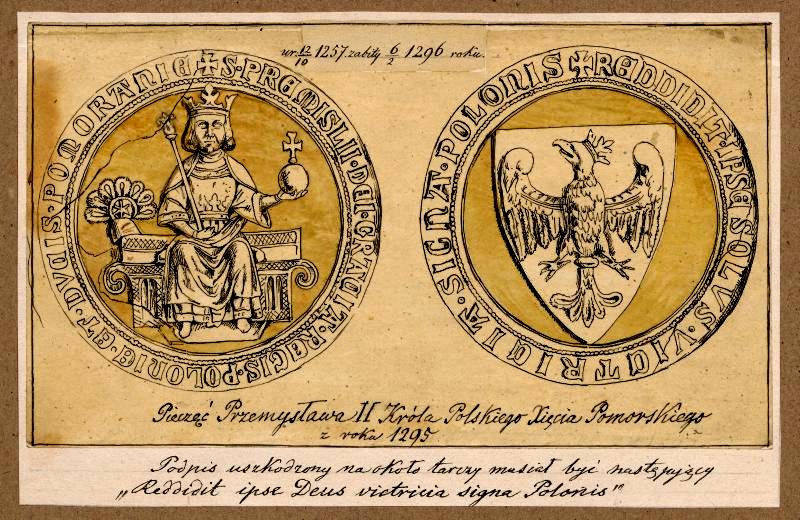 ur. 12/10 1257. zabity 6/2 1296 roku.
✠ S · PREMISLII · DEI · GRACIA · REGIS · POLONIE · ET · DVCIS · POMORANIE
✠ REDDIDIT · IPSE SOLVS · VICTRICIA · SIGNA · POLONIS
Pieczęć Przemysława II Króla Polskiego Xięcia Pomorskiego
z roku 1295
Podpis uszkodzony na około tarczy musiał być następujący
„Reddidit ipse Deus victricia signa Polonis"